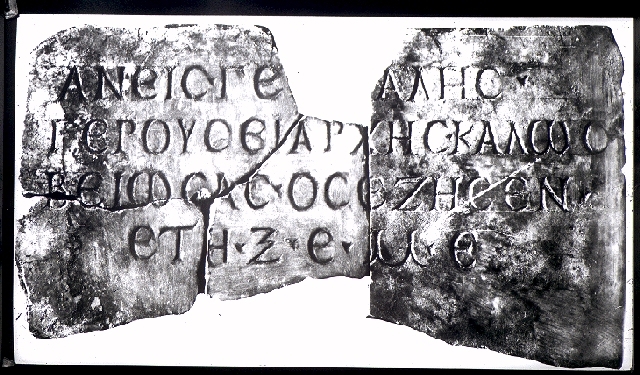 ΑΝΕΙϹΓΕ ΑΛΗϹ
ΓΕΡΟΥϹΕΙΑΡΧΗϹΚΑΛΩϹ
ΒΕΙΩϹΑϹ·ΟϹΕΖΗϹΕΝ
ΕΤΗ·Ξ·Ε·Μ·Θ